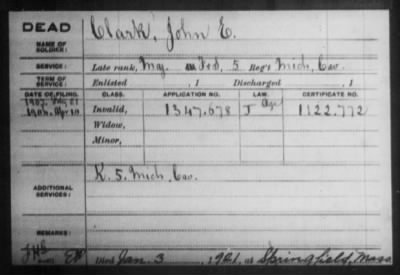 DEAD
NAME OF SOLDIER: Clark, John E.
SERVICE: Late rank, Maj. Fed, 5 Reg't Mich. Cav.
TERM OF SERVICE: Enlisted , 1 Discharged , 1
DATE OF FILING. CLASS. APPLICATION NO. LAW. CERTIFICATE NO.
1907. Aug 21 Invalid, 1347.678 J Age 1122.772
Apr 10
Widow,
Minor,
ADDITIONAL SERVICES: K. 5. Mich. Cav.
REMARKS:
Died Jan. 3, 1921, at Springfield, Mass